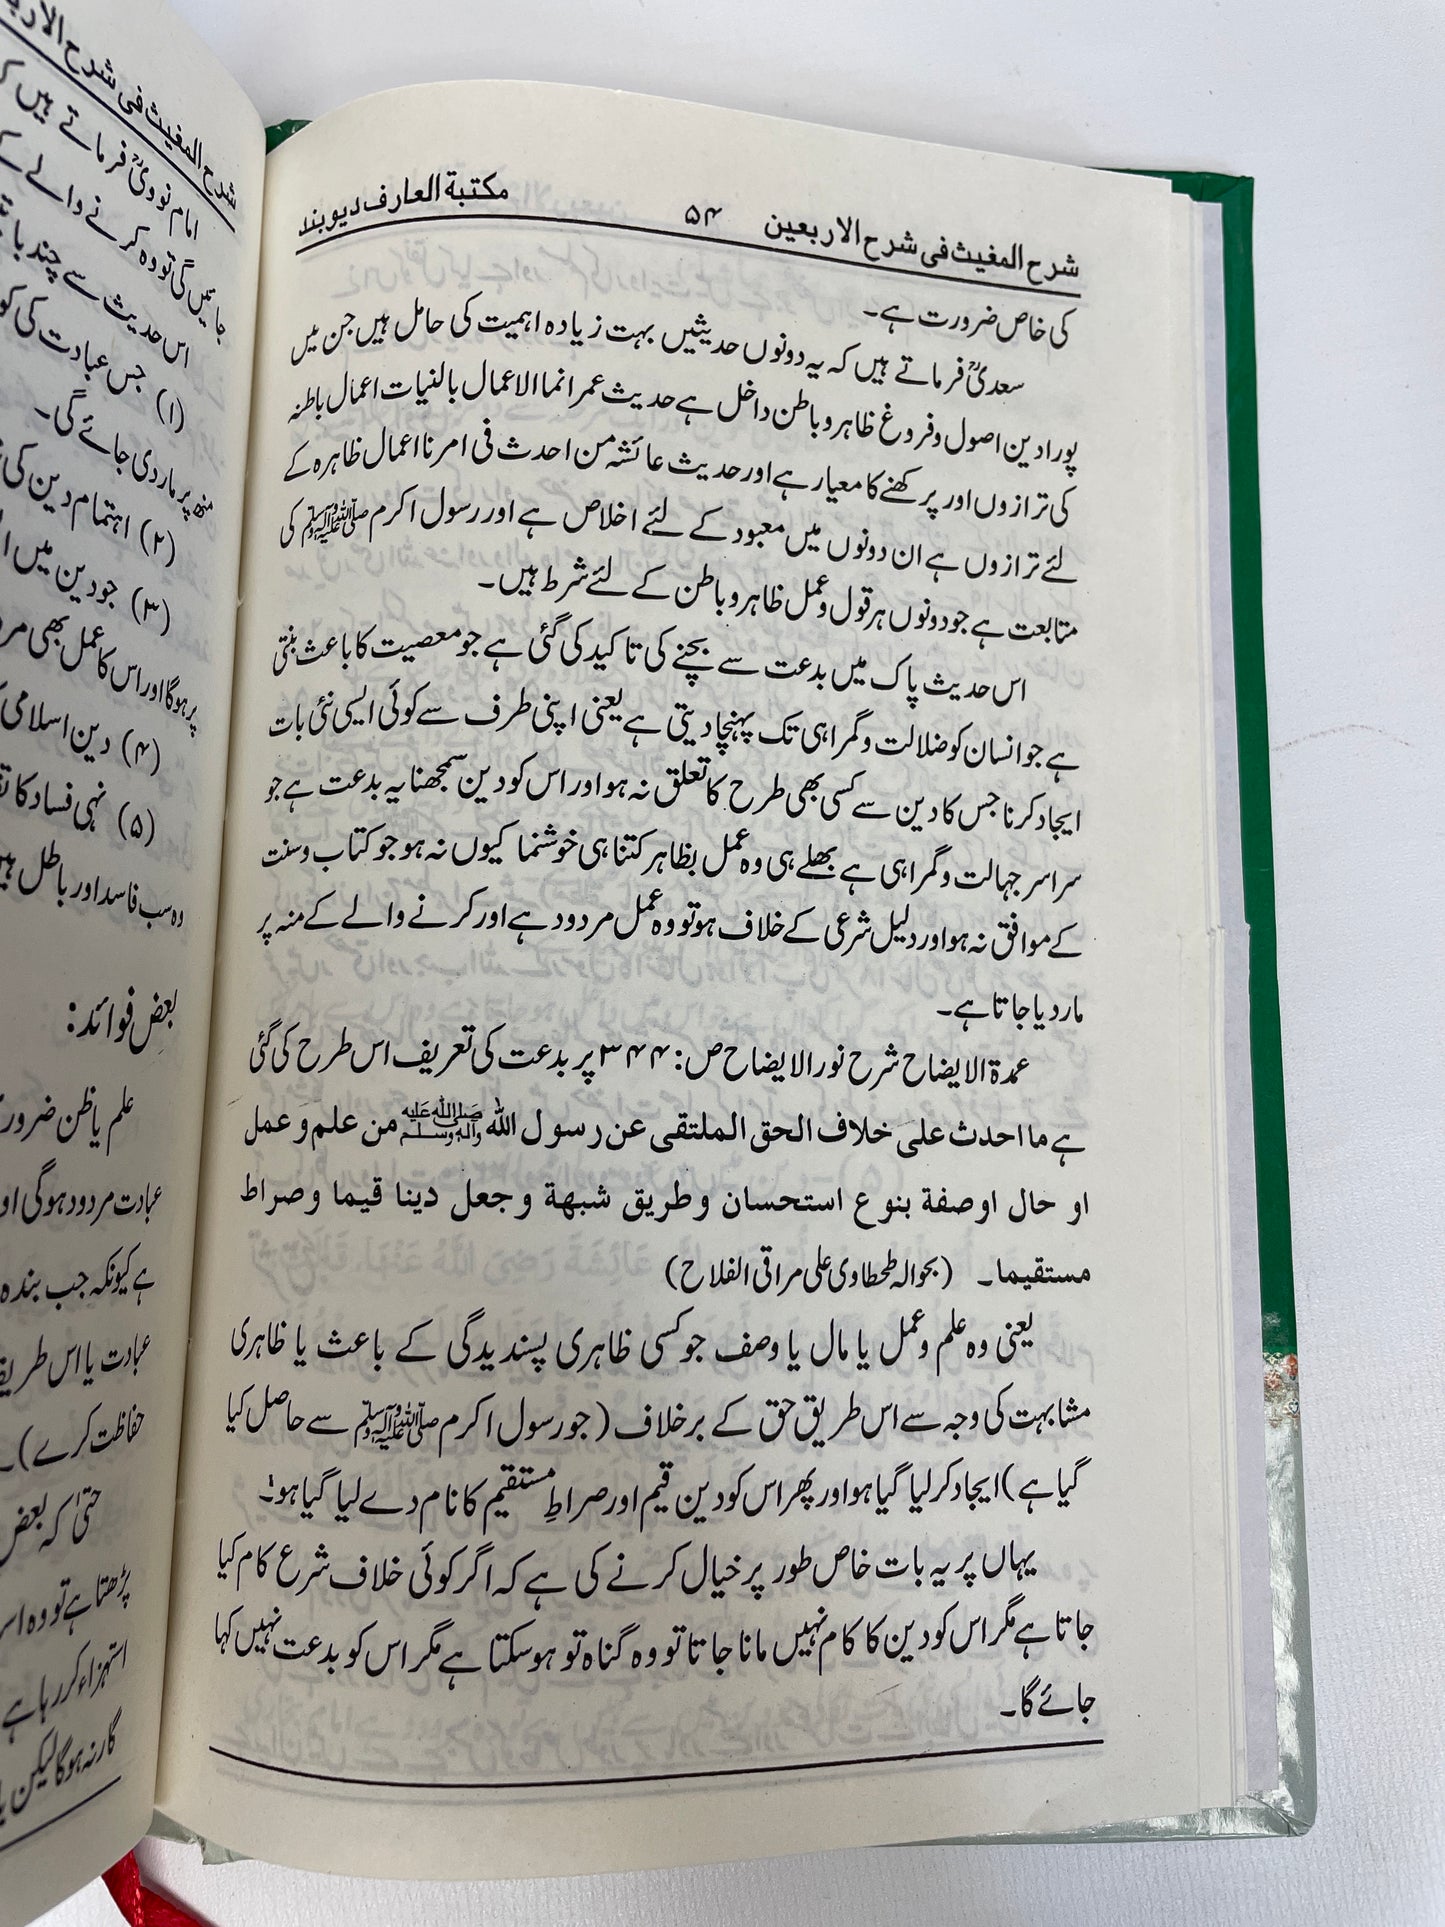 شرح المغیث فی شرح الاربعین ۵۴ مکتبة العارف دیوبند
کی خاص ضرورت ہے۔
سعدیؒ فرماتے ہیں کہ یہ دونوں حدیثیں بہت زیادہ اہمیت کی حامل ہیں جن میں
پورا دین اصول وفروغ ظاہر وباطن داخل ہے حدیث عمر انما الاعمال بالنیات اعمال باطنہ
کی ترازوں اور پرکھنے کا معیار ہے اور حدیث عائشہ من احدث فی امرنا اعمال ظاہرہ کے
لئے ترازوں ہے ان دونوں میں معبود کے لئے اخلاص ہے اور رسول اکرم ﷺ کی
متابعت ہے جو دونوں ہر قول وعمل ظاہر وباطن کے لئے شرط ہیں۔
اس حدیث پاک میں بدعت سے بچنے کی تاکید کی گئی ہے جو معصیت کا باعث بنتی
ہے جو انسان کو ضلالت وگمراہی تک پہنچا دیتی ہے یعنی اپنی طرف سے کوئی ایسی نئی بات
ایجاد کرنا جس کا دین سے کسی بھی طرح کا تعلق نہ ہو اور اس کو دین سمجھنا یہ بدعت ہے جو
سراسر جہالت وگمراہی ہے بھلے ہی وہ عمل بظاہر کتنا ہی خوشنما کیوں نہ ہو جو کتاب وسنت
کے موافق نہ ہو اور دلیل شرعی کے خلاف ہو تو وہ عمل مردود ہے اور کرنے والے کے منہ پر
مار دیا جاتا ہے۔
عمدۃ الایضاح شرح نور الایضاح ص: ۳۴۴ پر بدعت کی تعریف اس طرح کی گئی
ہے ما احدث علی خلاف الحق الملتقی عن رسول اللہ ﷺ من علم و عمل
او حال او صفة بنوع استحسان وطریق شبهة وجعل دینا قیما وصراط
مستقیما۔ (بحوالہ طحطاوی علی مراقی الفلاح)
یعنی وہ علم وعمل یا مال یا وصف جو کسی ظاہری پسندیدگی کے باعث یا ظاہری
مشابہت کی وجہ سے اس طریق حق کے برخلاف (جو رسول اکرم ﷺ سے حاصل کیا
گیا ہے) ایجاد کر لیا گیا ہو اور پھر اس کو دین قیم اور صراطِ مستقیم کا نام دے لیا گیا ہو۔
یہاں پر یہ بات خاص طور پر خیال کرنے کی ہے کہ اگر کوئی خلاف شرع کام کیا
جاتا ہے مگر اس کو دین کا کام نہیں مانا جاتا تو وہ گناہ تو ہو سکتا ہے مگر اس کو بدعت نہیں کہا
جائے گا۔
شرح المغیث فی شرح
امام نوویؒ فرماتے ہیں
جائیں گی تو وہ کرنے والے کے
اس حدیث سے چند
(۱) جس عبادت کی
منہ پر مار دی جائے گی۔
(۲) اہتمام دین کی
(۳) جو دین میں
پر ہوگا اور اس کا عمل بھی
(۴) دین اسلامی
(۵) نہی فساد کا
وہ سب فاسد اور باطل
بعض فوائد:
علم یا ظن
عبادت مردود ہوگی
ہے کیونکہ جب بندہ
عبادت یا اس
حفاظت کرے)۔
حتیٰ کہ بعض
پڑھتا ہے تو وہ
استہزاء کر رہا ہے
گار نہ ہوگا لیکن